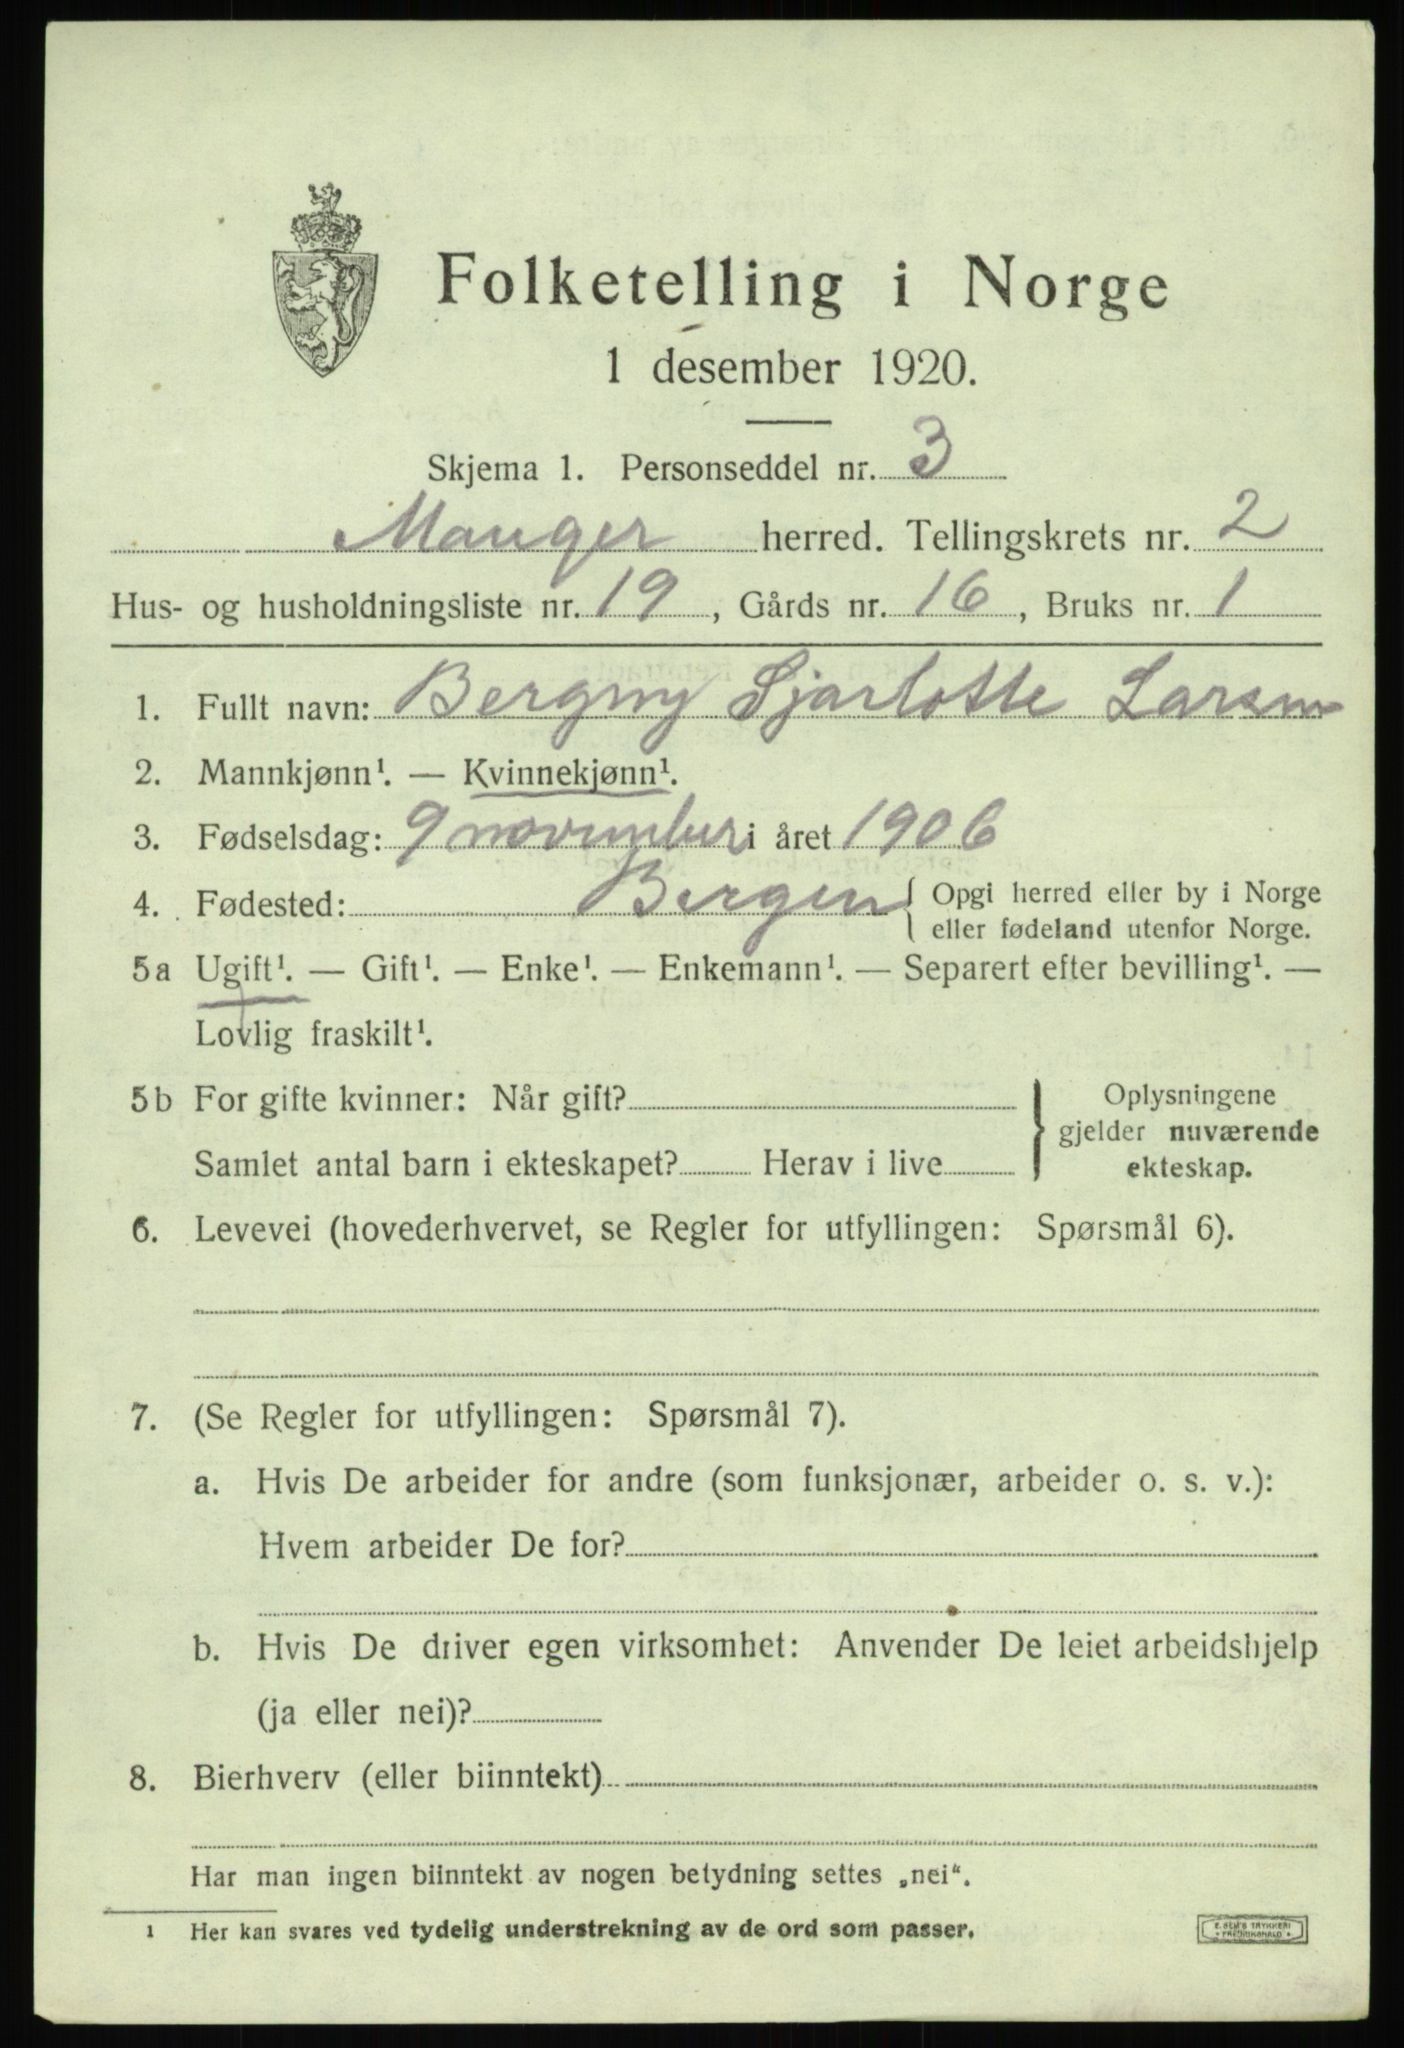 Folketelling i Norge
1 desember 1920.
Skjema 1. Personseddel nr. 3
Manger herred. Tellingskrets nr. 2
Hus- og husholdningsliste nr. 19, Gårds nr. 16, Bruks nr. 1
1. Fullt navn: Bergny Sjarlotte Larsen
2. Mannkjønn¹. — Kvinnekjønn¹.
3. Fødselsdag: 9 november i året 1906
4. Fødested: Bergen { Opgi herred eller by i Norge
eller fødeland utenfor Norge.
5a Ugift¹. — Gift¹. — Enke¹. — Enkemann¹. — Separert efter bevilling¹. —
Lovlig fraskilt¹.
5b For gifte kvinner: Når gift?
Samlet antal barn i ekteskapet? Herav i live
} Oplysningene
gjelder nuværende
ekteskap.
6. Levevei (hovederhvervet, se Regler for utfyllingen: Spørsmål 6).
7. (Se Regler for utfyllingen: Spørsmål 7).
a. Hvis De arbeider for andre (som funksjonær, arbeider o. s. v.):
Hvem arbeider De for?
b. Hvis De driver egen virksomhet: Anvender De leiet arbeidshjelp
(ja eller nei)?
8. Bierhverv (eller biinntekt)
Har man ingen biinntekt av nogen betydning settes „nei“.
1 Her kan svares ved tydelig understrekning av de ord som passer.
E. SEM'S TRYKKERI
FREDRIKSHALD